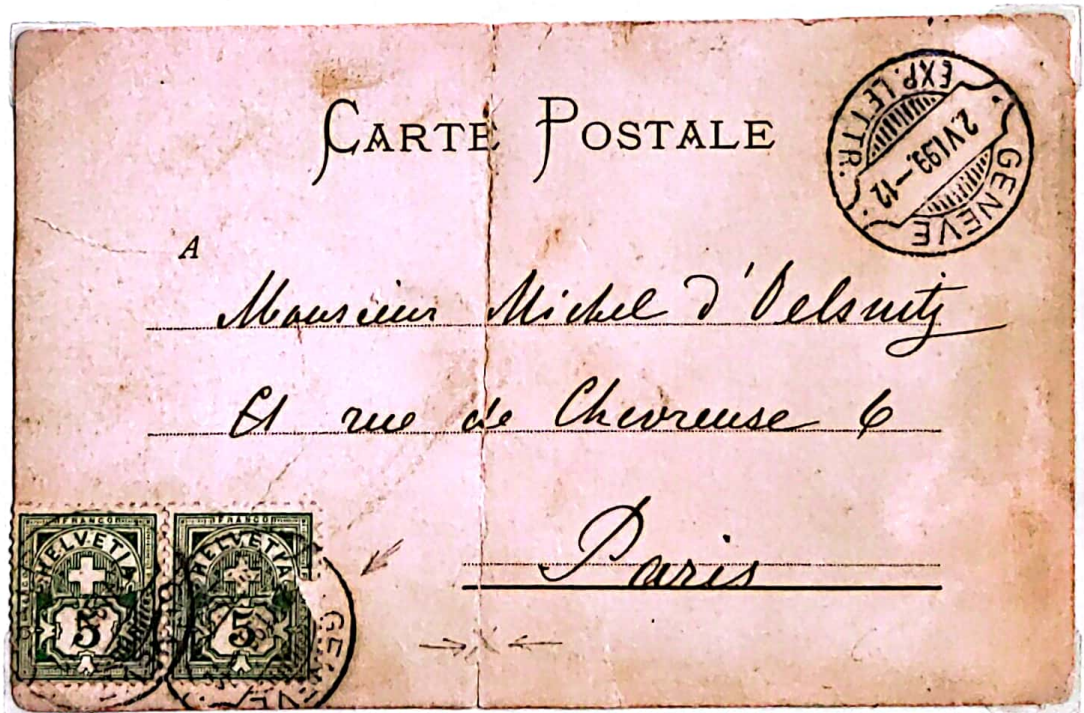 CARTE POSTALE
GENEVE
EXP. LETTR.
2.VI.99.—12
A
Monsieur Michel d'Oelsnitz
rue de Chevreuse 6
Paris
FRANCO FRANCO
HELVETIA HELVETIA
5 5
GENEVE